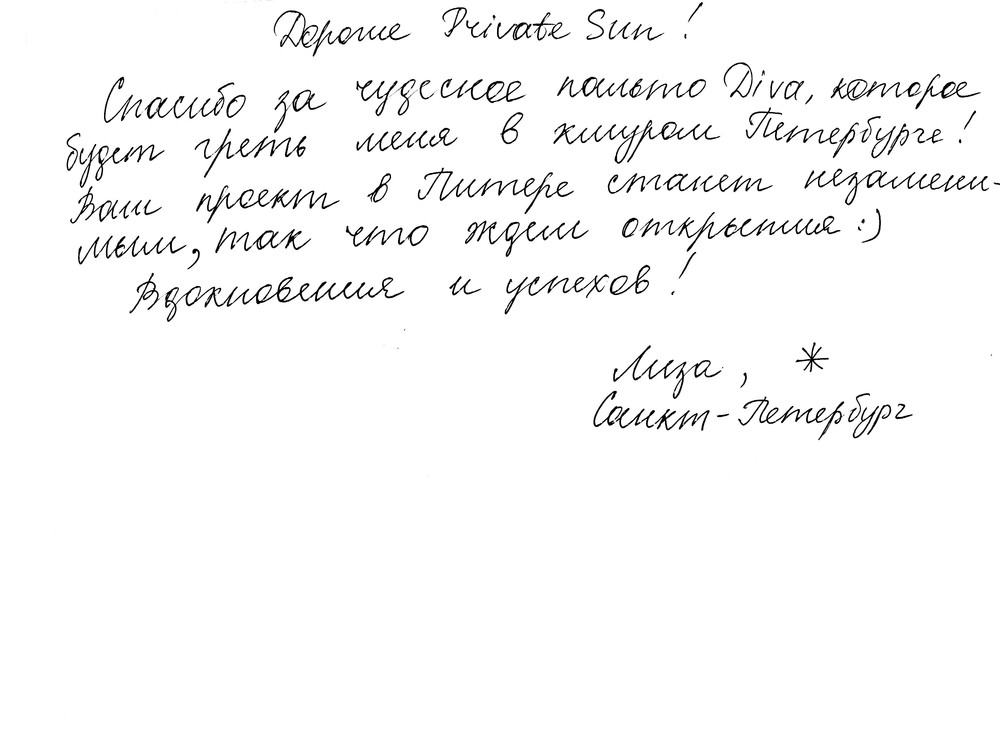 Дорогие Private Sun!
Спасибо за чудесное пальто Diva, которое
будет греть меня в хмуром Петербурге!
Ваш проект в Питере станет незамени-
мым, так что ждем открытия :)
Вдохновения и успехов!
Лиза, *
Санкт-Петербург